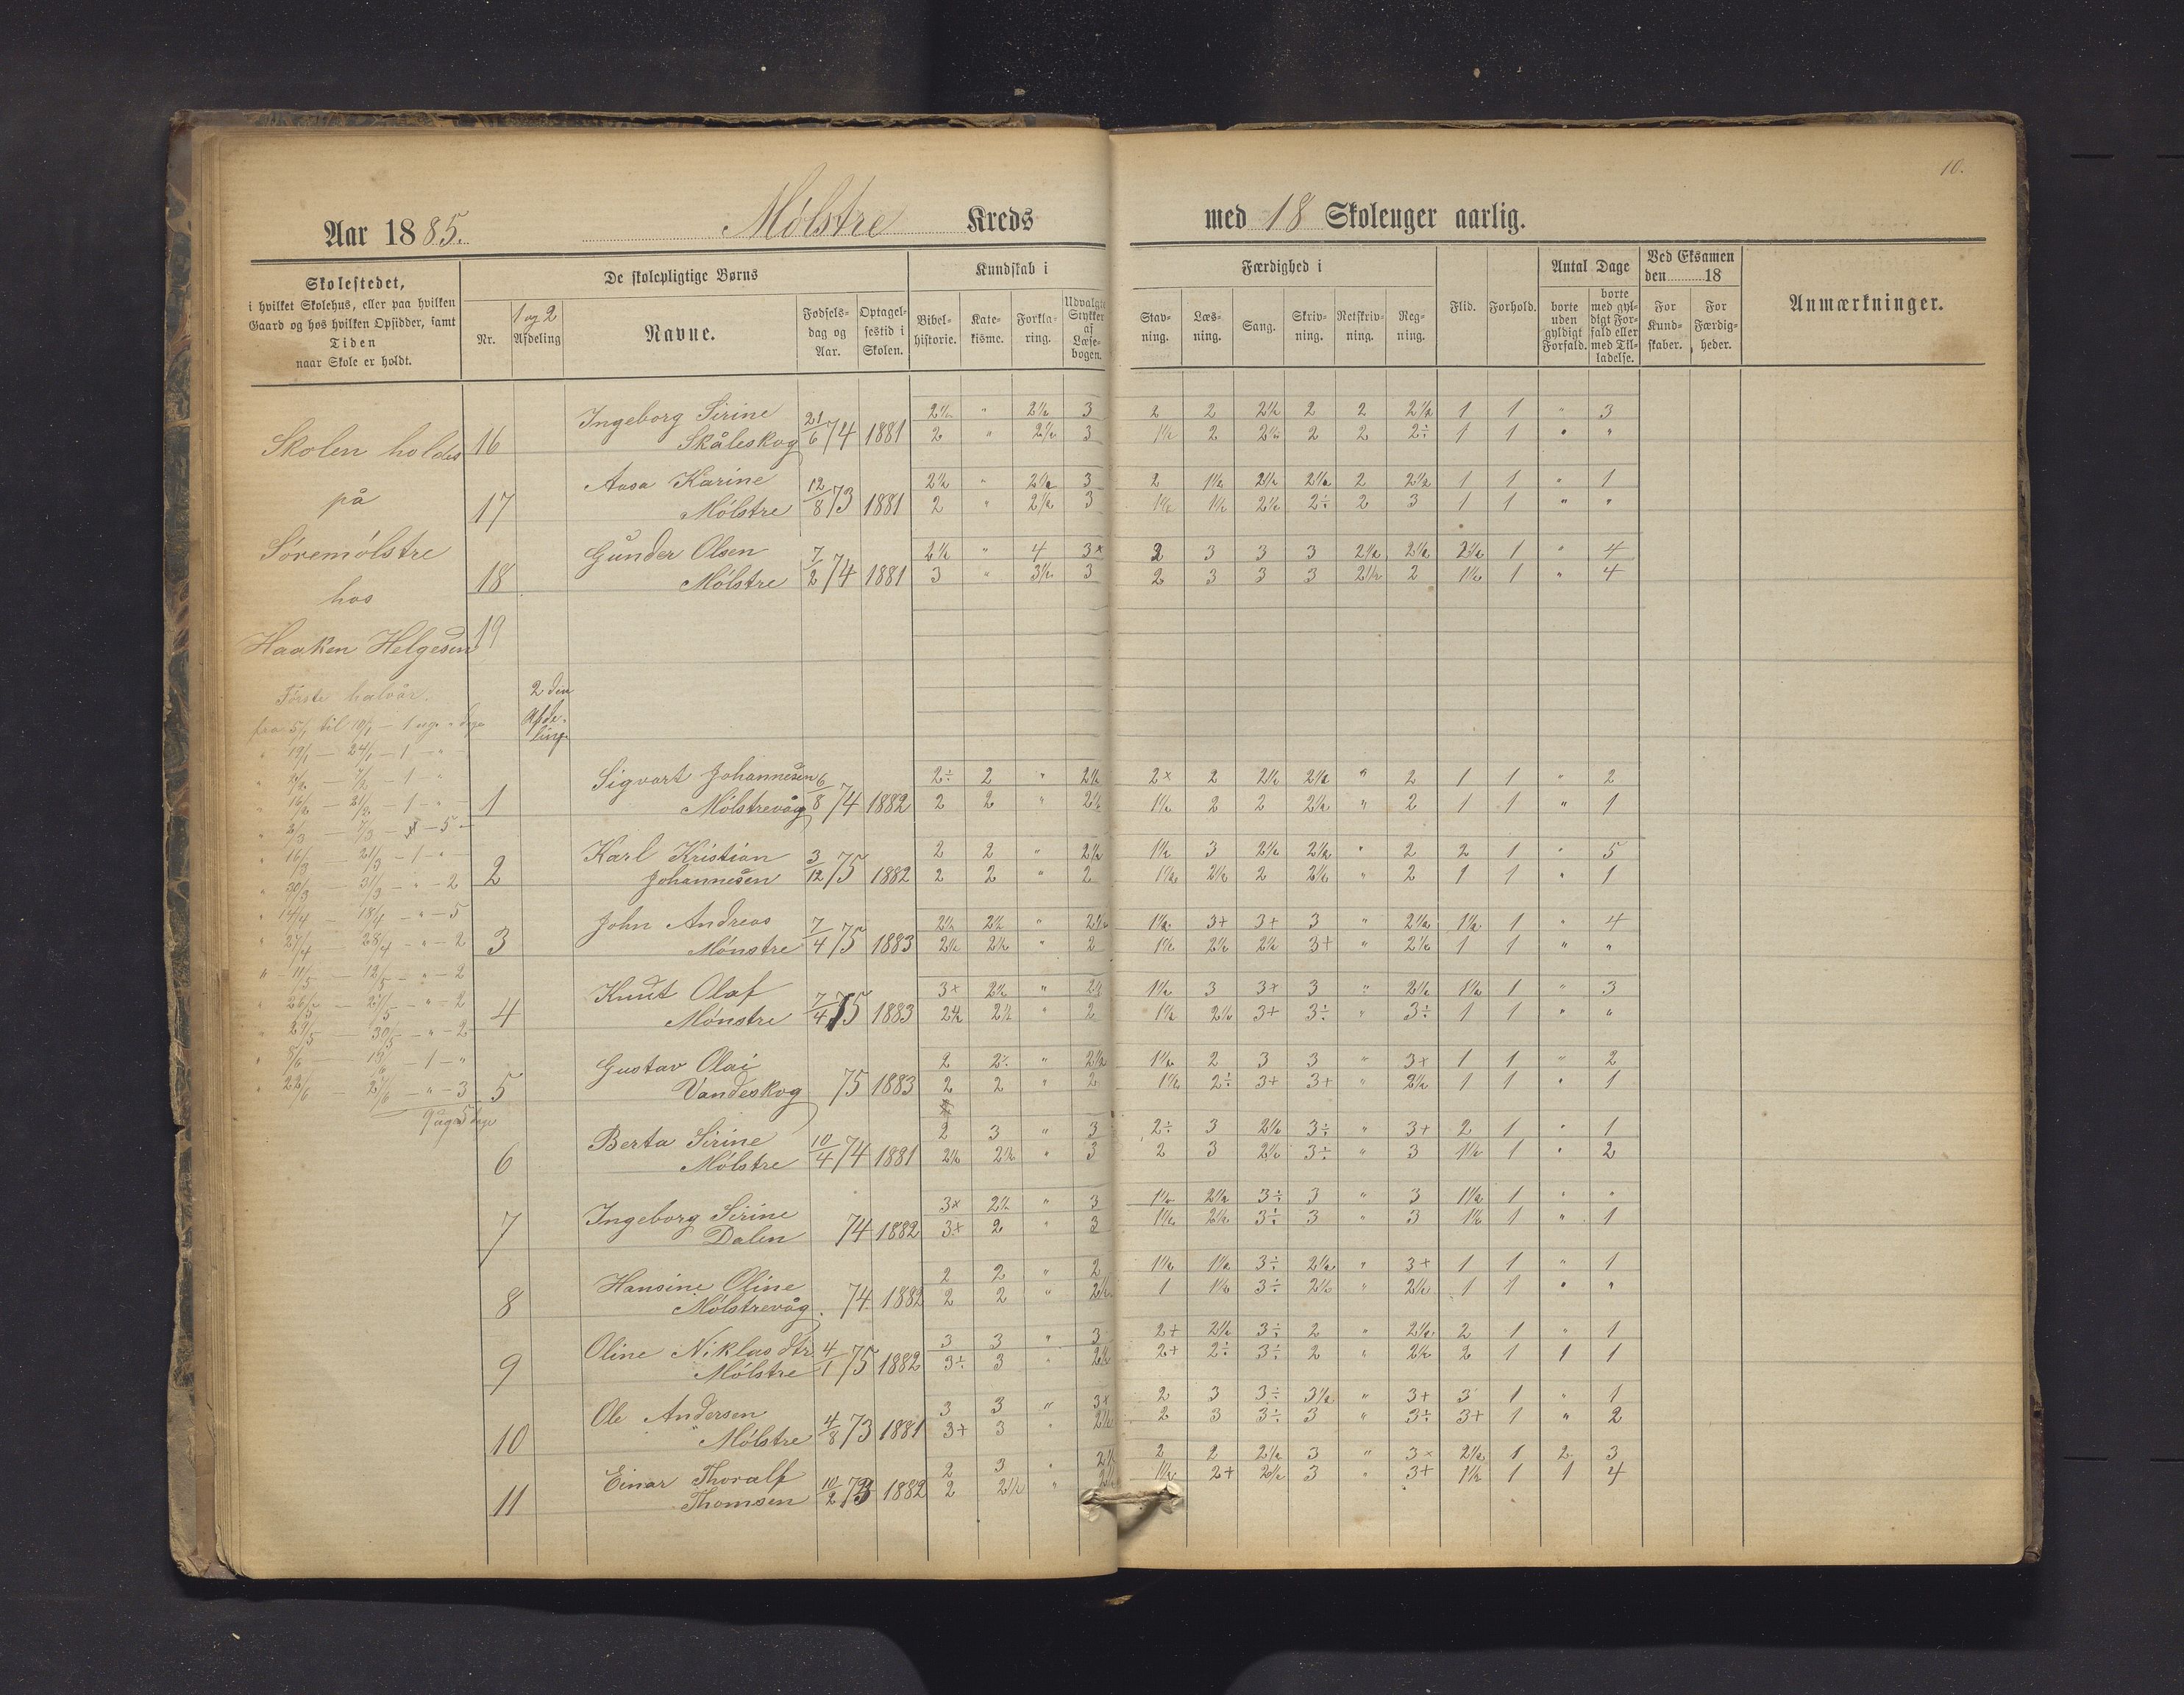 10.
Aar 1885. Mölstre Kreds med 18 Skoleuger aarlig.
Skolestedet,
i hvilket Skolehus, eller paa hvilken
Gaard og hos hvilken Opsidder, samt
Tiden
naar Skole er holdt.
De skolepligtige Børns
Nr.
1 og 2
Afdeling
Navne.
Fødsels-
dag og
Aar.
Optagel-
sestid i
Skolen.
Kundskab i
Bibel-
historie.
Kate-
kisme.
Forkla-
ring.
Udvalgte
Stykker
af
Læse-
bogen.
Færdighed i
Stav-
ning.
Læs-
ning.
Sang.
Skriv-
ning.
Retskriv-
ning.
Reg-
ning.
Flid.
Forhold.
Antal Dage
borte
uden
gyldigt
Forfald.
borte
med gyl-
digt For-
fald eller
med Til-
ladelse.
Ved Eksamen
den 18
For
Kund-
skaber.
For
Færdig-
heder.
Anmærkninger.
Skolen holdes
på
Söremölstre
hos
Haaken Helgesen
Første halvår.
16 Ingeborg Sirine 21/6 74 1881 2½ " 2½ 3 2 2 2½ 2 2 2½ 1 1 " 3
Skåleskog 2 " 2½ 3 1½ 2 2½ 2 2 2÷ 1 1 " "
17 Aasa Karine 12/8 73 1881 2½ " 2½ 3 2 1½ 2½ 2½ 2 2½ 1 1 " 1
Mölstre 2 " 2½ 3 1½ 1½ 2½ 2÷ 2 3 1 1 " "
18 Gunder Olsen 7/2 74 1881 2½ " 4 3× 2 3 3 3 2½ 2½ 2½ 1 " 4
Mölstre 3 " 3½ 3 2 3 3 3 2½ 2 1½ 1 " 4
19
2 den
Afde-
ling
1 Sigvart Johannesen 6/8 74 1882 2÷ 2 " 2½ 2× 2 2½ 2½ " 2 1 1 " 2
Mölstrevåg 2 2 " 2½ 1½ 2 2 2½ " 2 1 1 " 1
2 Karl Kristian 3/12 75 1882 2 2 " 2½ 1½ 3 2½ 2½ " 2 2 1 " 5
Johannesen 2 2 " 2 1½ 2½ 2 2½ " 2 1 1 " 1
3 John Andreas 7/4 75 1883 2½ 2½ " 2½ 1½ 3+ 3+ 3 " 2½ 1½ 1 " 4
Mönstre 2½ 2½ " 2 1½ 2½ 2½ 3+ " 2½ 1 1 " "
4 Knut Olaf 7/4 75 1883 3× 2½ " 2½ 1½ 3 3+ 3 " 2½ 1½ 1 " 3
Mönstre 2½ 2½ " 2 1½ 2½ 3+ 3÷ " 3÷ 1 1 " "
5 Gustav Olai 75 1883 2 2÷ " 2½ 1½ 2 3 3 " 3+ 1 1 " 2
Vandeskog 2 2 " 2 1½ 2÷ 3+ 3+ " 2½ 1 1 " 1
6 Berta Sirine 10/4 74 1881 2 3 " 3 2÷ 3 2½ 3÷ " 3+ 2 1 " 1
Mölstre 2½ 2½ " 3 2 3 2½ 3÷ " 3 1½ 1 " 2
7 Ingeborg Sirine 74 1882 3× 2½ " 3 1½ 2½ 3÷ 3 " 3 1½ 1 " "
Dalen 3+ 2 " 3 1½ 2½ 3÷ 3 " 3 1½ 1 " 1
8 Hansine Oline 74 1882 2 2 " 2 1½ 1½ 3÷ 2½ " 3+ 1 1 " 1
Mölstrevåg 2 2 " 2½ 1 1½ 3÷ 2½ " 2½ 1 1 " "
9 Oline Niklasdtr 4/1 75 1882 3 3 " 3 2+ 2½ 3÷ 2 " 2½ 2 1 " 1
Mölstre 3÷ 3 " 2½ 2+ 2÷ 3÷ 2 " 2½ 2 1 1 1
10 Ole Andersen 4/8 73 1881 3 3 " 3× 2 3 3÷ 3½ " 3+ 3 1 " 1
Mölstre 3+ 3 " 2½ 2 3 3÷ 3 " 3÷ 3+ 1 " 2
11 Einar Thoralf 10/2 73 1882 2 3 " 2½ 2 2 2½ 3 " 3× 2½ 1 2 3
Thomsen 2 2½ " 1½ 2+ 2½ 3 " 3+ 1½ 1 1 4
fra 5/1 til 10/1 – 1 uge " dage
" 19/1 – 24/1 – 1 – "
" 2/2 – 7/2 – 1 – "
" 16/2 – 21/2 – 1 – "
" 2/3 – 7/3 – – 5 –
" 16/3 – 21/3 – 1 – "
" 30/3 – 31/3 – " – 2
" 14/4 – 18/4 – " – 5
" 27/4 – 28/4 – " – 2
" 11/5 – 12/5 – " – 2
" 26/5 – 27/5 – " – 2
" 29/5 – 30/5 – " – 2
" 8/6 – – 1 – "
" 22/6 – – " – 3
9 uger 5 dage